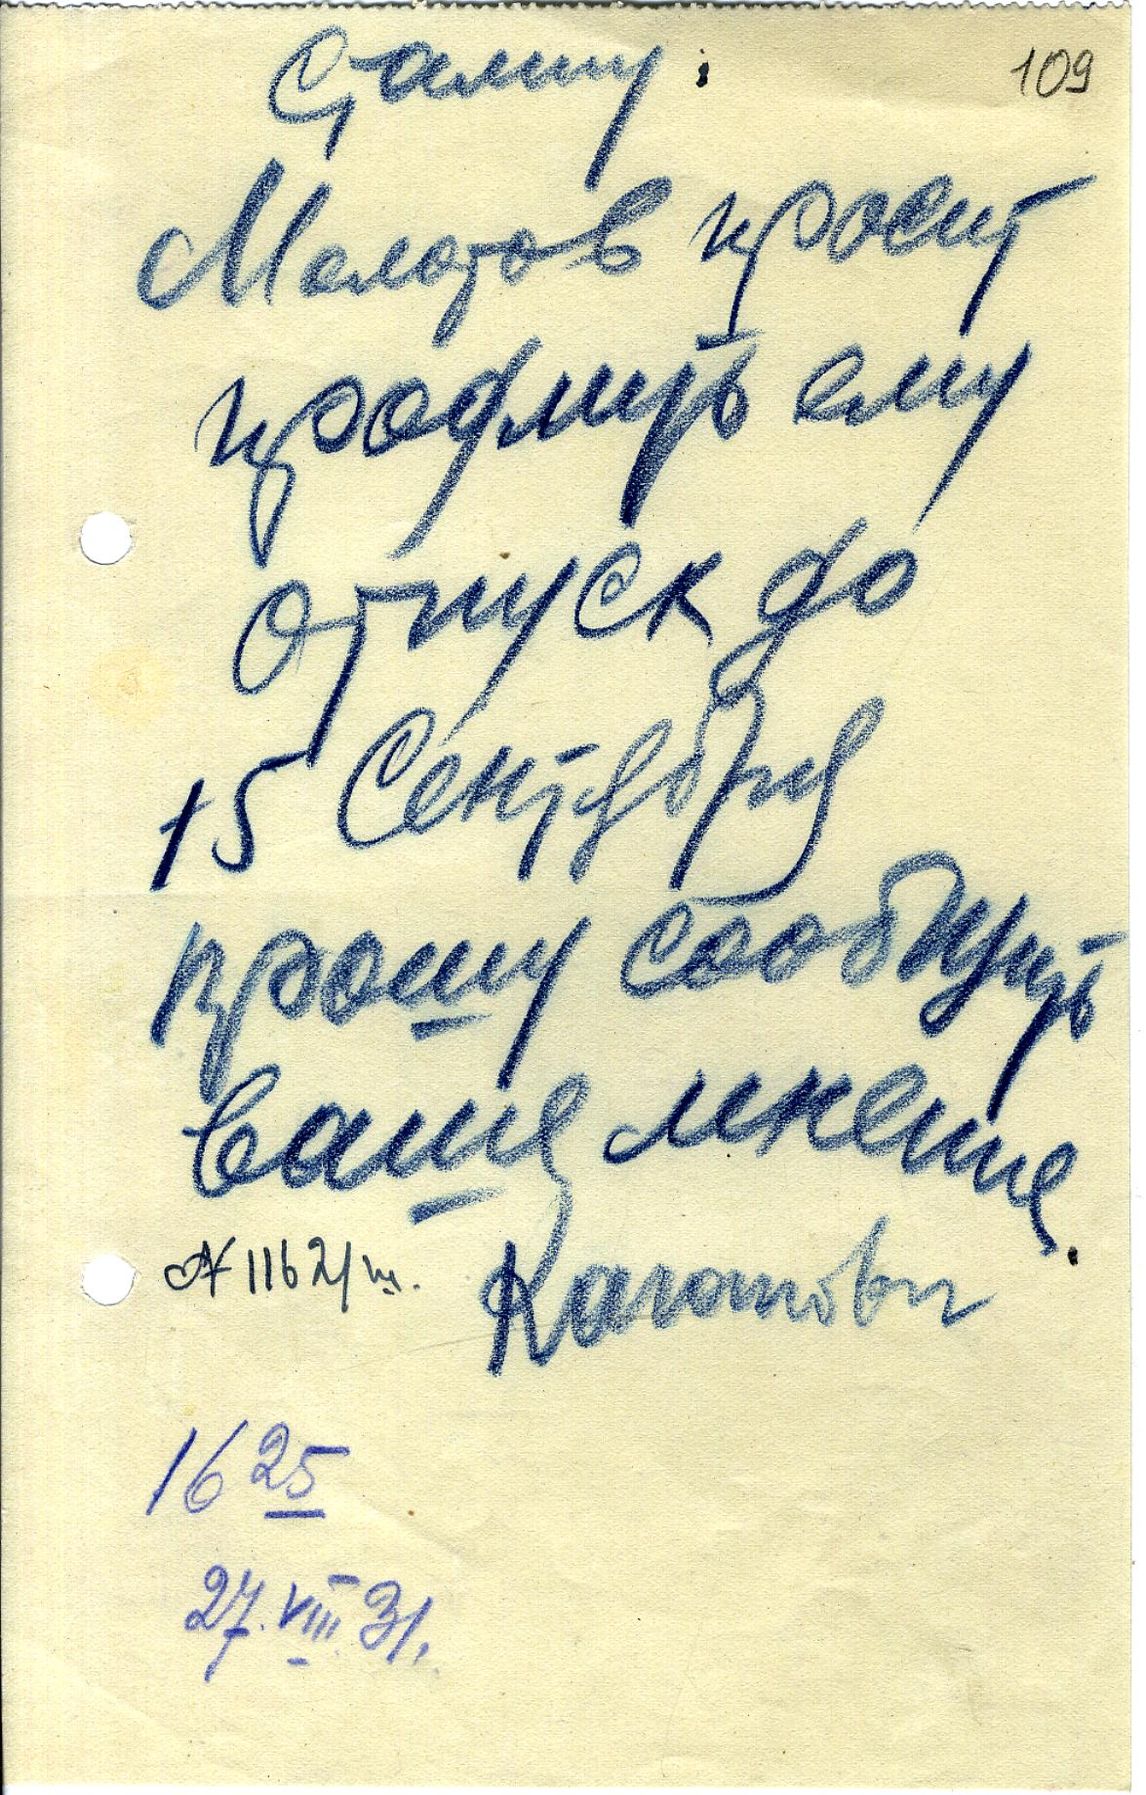 109
Сталину.
Молотов просит
продлить ему
отпуск до
15 Сентября
прошу сообщить
ваше мнение.
Каганович
№ 1162/ш.
16 25
27.VIII 31.